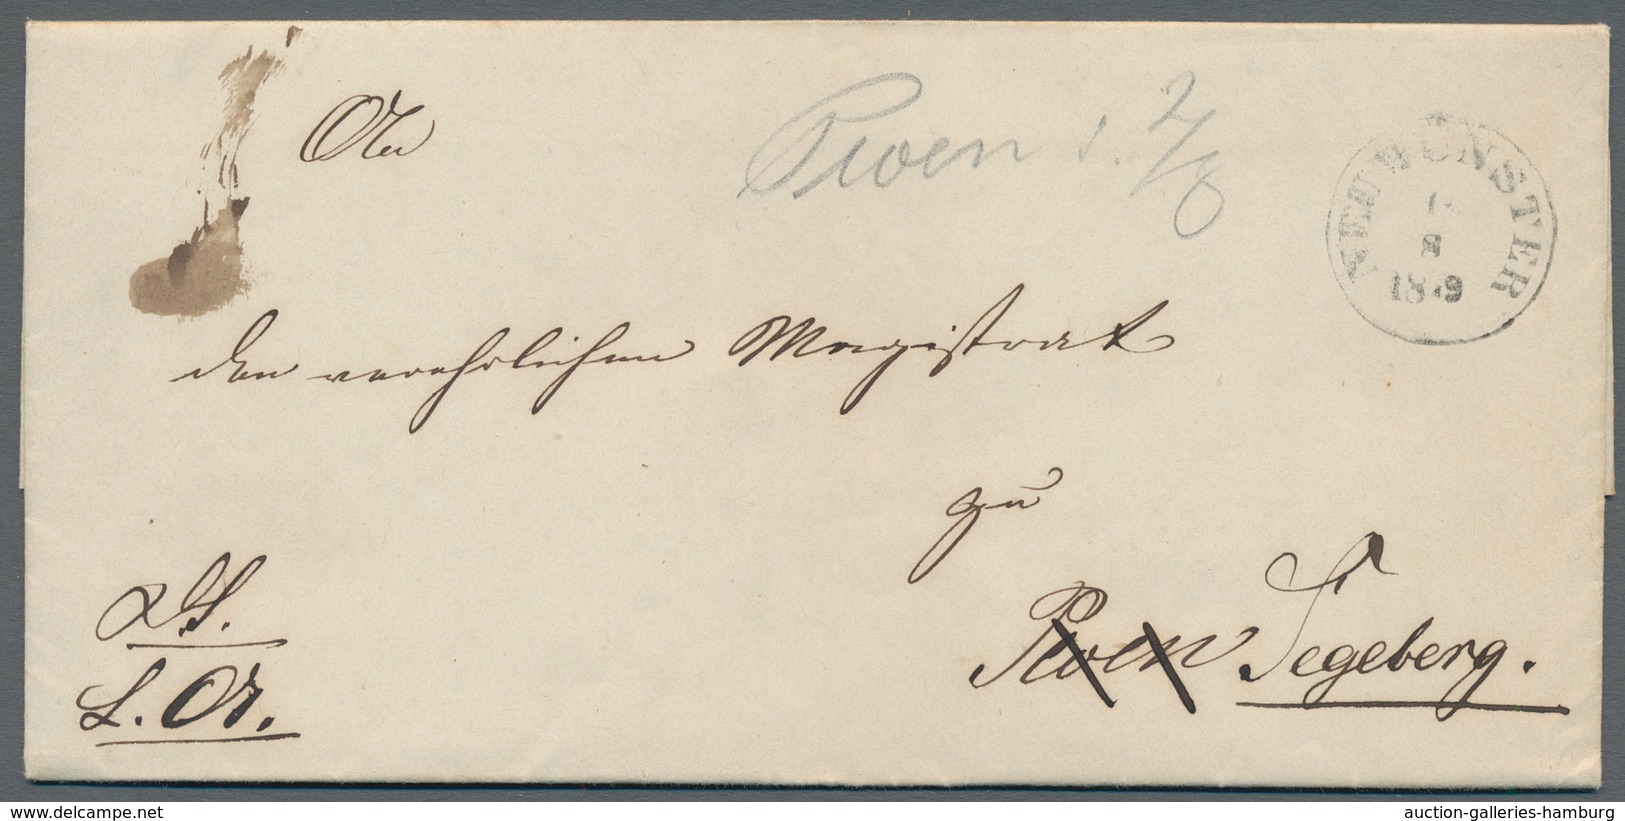 An
Ploen d. 2/8
NEUMÜNSTER
8
18 9
den verehrlichen Magistrat
zu
Ploen Segeberg.
D.S.
L. Or.
www.delcampe.net
auction-galleries-hamburg